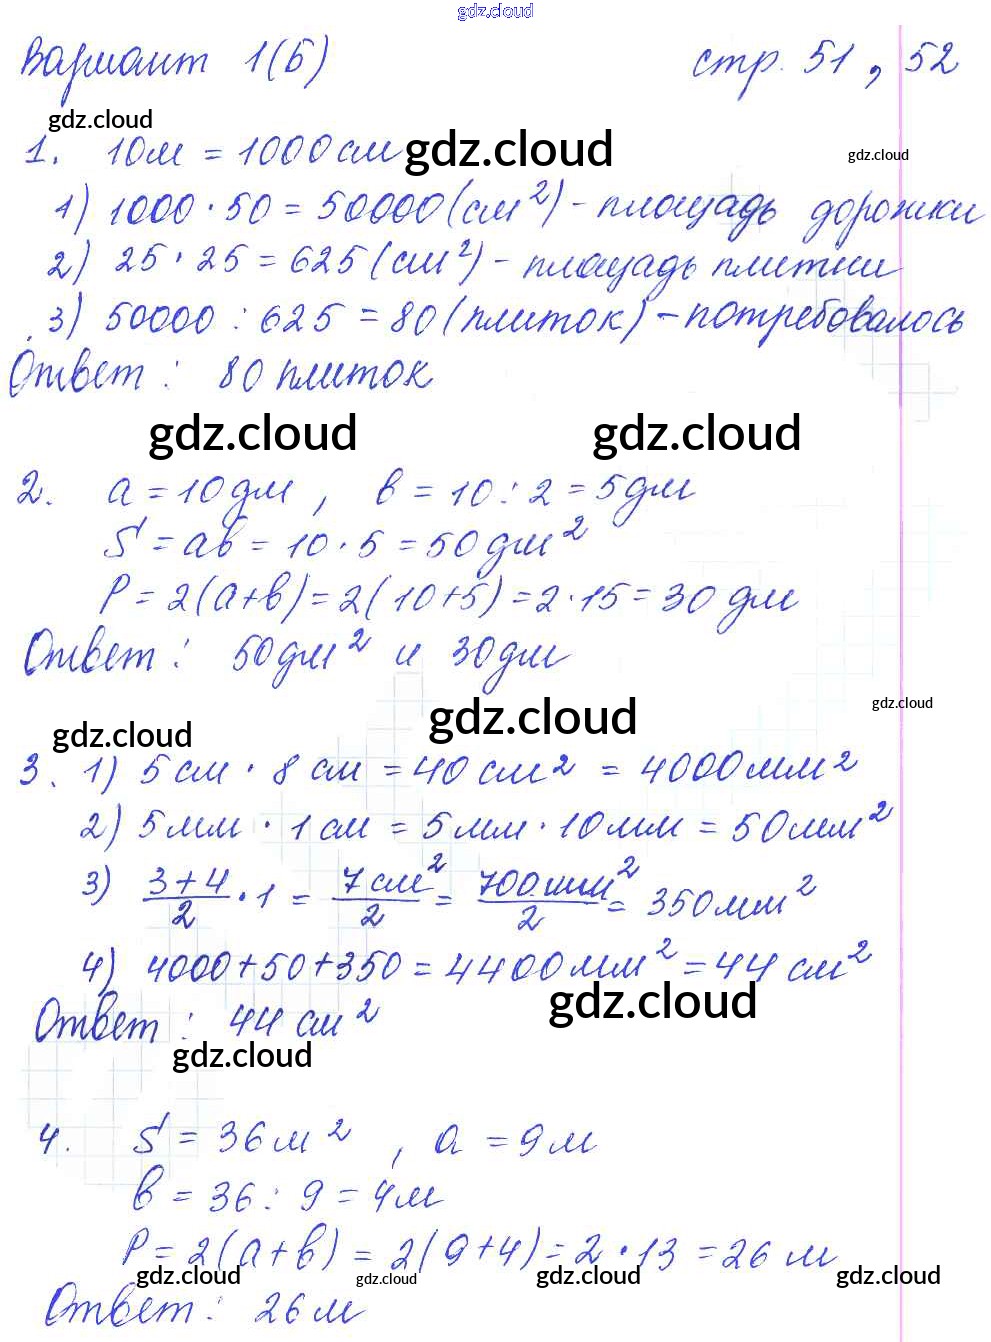 gdz.cloud
Вариант 1(Б) стр. 51, 52
gdz.cloud
1. 10м = 1000см gdz.cloud gdz.cloud
1) 1000 · 50 = 50000 (см²) - площадь дорожки
2) 25 · 25 = 625 (см²) - площадь плитки
3) 50000 : 625 = 80 (плиток) - потребовалось
Ответ: 80 плиток
gdz.cloud gdz.cloud
2. a = 10дм, в = 10 : 2 = 5дм
S = aв = 10 · 5 = 50дм²
P = 2(a+в) = 2(10+5) = 2·15 = 30 дм
Ответ: 50дм² и 30дм
gdz.cloud gdz.cloud gdz.cloud
3. 1) 5 см · 8 см = 40 см² = 4000мм²
2) 5мм · 1 см = 5мм · 10мм = 50мм²
3) (3+4)/2 · 1 = 7см²/2 = 700мм²/2 = 350мм²
4) 4000+50+350 = 4400мм² = 44 см²
gdz.cloud
Ответ: 44 см²
gdz.cloud
4. S = 36м², a = 9м
в = 36 : 9 = 4м
P = 2(a+в) = 2(9+4) = 2·13 = 26 м
gdz.cloud gdz.cloud gdz.cloud gdz.cloud
Ответ: 26м